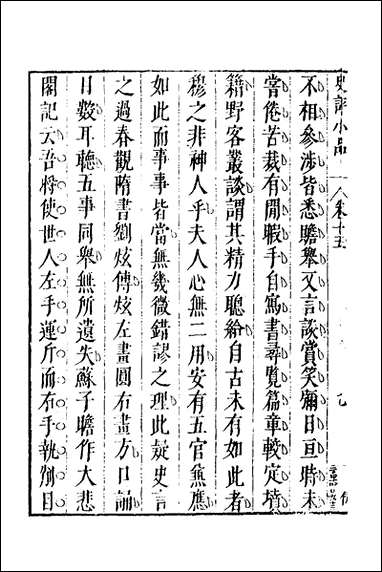 史評小品 卷十五
不相參涉皆悉贍舉又言談賞笑彌日亘時未
嘗倦苦裁有閒暇手自寫書尋覽篇章較定墳
籍野客叢談謂其精力聰給自古未有如此者
穆之非神人乎夫人心無二用安有五官並應
如此而事事皆當無幾微錯謬之理此疑史言
之過春觀隋書劉炫傳炫左畫圓右畫方口誦
目數耳聽五事同舉無所遺失蘇子瞻作大悲
閣記云吾將使世人左手運斤而右手執削目